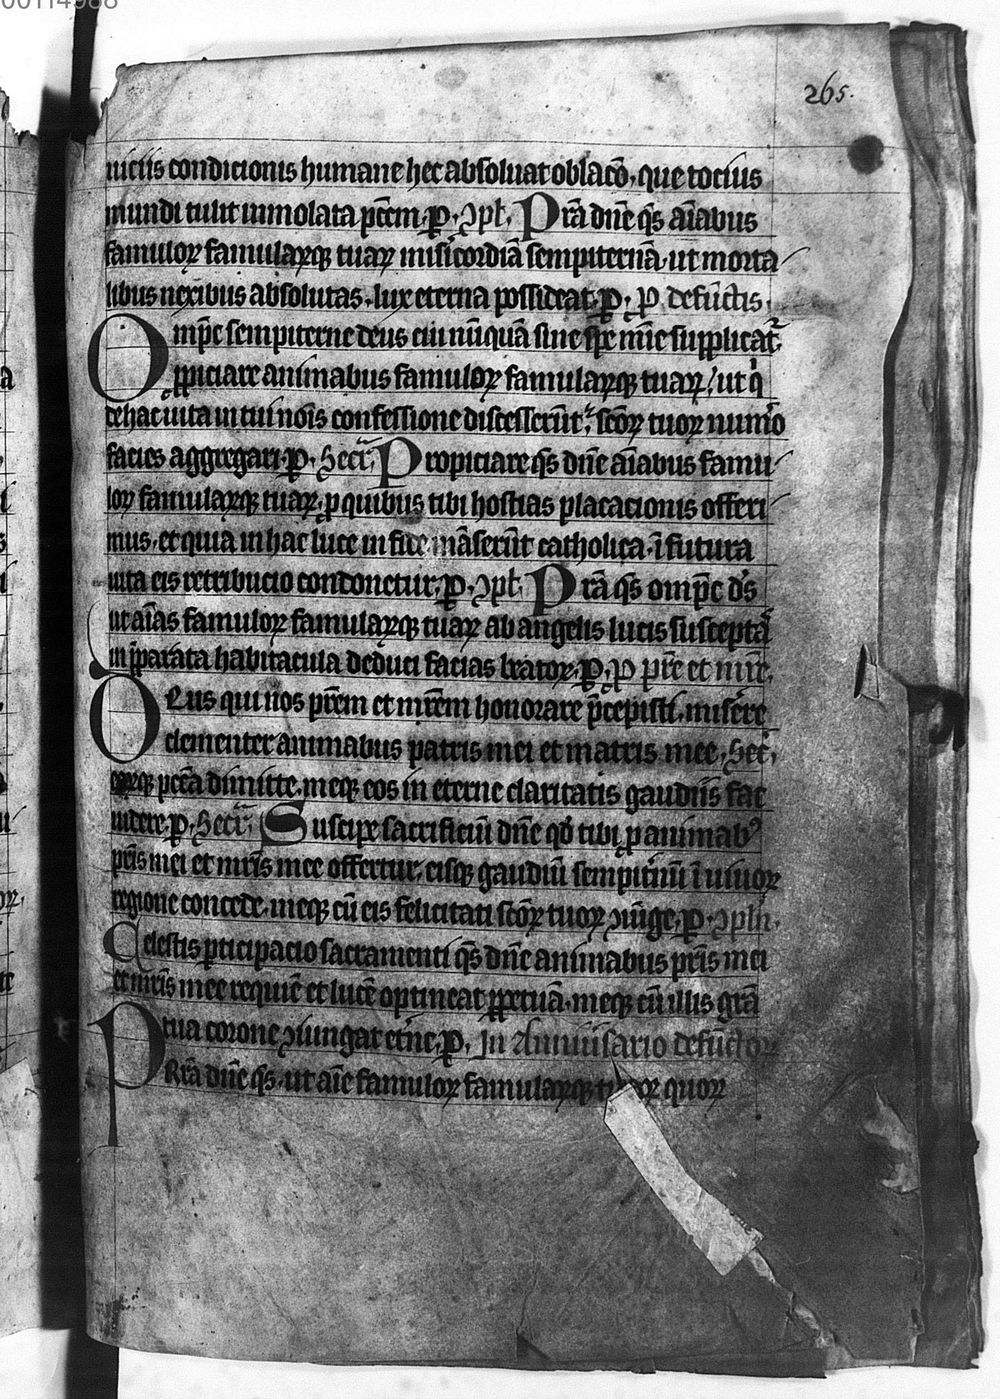 265.
uiciis condicionis humane hec absoluat oblac̄o, que tocius
mundi tulit inmolata pc̄cm. p. Ↄpl. Pr̄a dn̄e qs̄ aīabus
famuloꝝ famularꝝqꝫ tuaꝝ mis̄icordiā sempiternā. ut morta
libus nexibus absolutas. lux eterna possideat. p. P. defūctis.
Omp̄c sempiterne deus cui nūquā sine spe mīe supplicat᷑.
ꝓpiciare animabus famuloꝝ famularꝝqꝫ tuaꝝ, ut qͥ
de hac uita in tui nōis confessione discesserūt, sc̄oꝝ tuoꝝ num̄o
facies aggregari. p. Secr̄. Propiciare qs̄ dn̄e aīabus famu
loꝝ famularꝝqꝫ tuaꝝ. ꝓ quibus tibi hostias placacionis offeri
mus. et quia in hac luce in fide māserūt catholica. ī futura
uita eis retribucio condonetur. p. Ↄpl. Pr̄a qs̄ omp̄c ds̄
ut aīas famuloꝝ famularꝝqꝫ tuaꝝ ab angelis lucis susceptas
in p̄parata habitacula deduci facias beatoꝝ. p. P pr̄e et mr̄e.
Deus qui nos pr̄em et mr̄em honorare p̄cepisti. miser̄e
clementer animabus patris mei et matris mee,
eorꝝqꝫ pc̄ca dimitte. meqꝫ eos in eterne claritatis gaudiis fac
uidere. p. Secr̄. Suscipe sacrificiū dn̄e qd̄ tibi ꝓ animabꝰ
pr̄is mei et mr̄is mee offertur. eisqꝫ gaudiū sempit̄nū ī uiuoꝝ
regione concede. meqꝫ cū eis felicitati sc̄oꝝ tuoꝝ ↄiūge. p. Ↄpln̄.
Celestis ꝑticipacio sacramenti qs̄ dn̄e animabus pr̄is mei
et mr̄is mee requiē et lucē optineat ꝑpetuā. meqꝫ cū illis gr̄a
tua corone ↄiungat et̄ne. p. In Anniu̅sario defūctoꝝ
PRr̄a dn̄e qs̄. ut aīe famuloꝝ famularꝝqꝫ quoꝝ